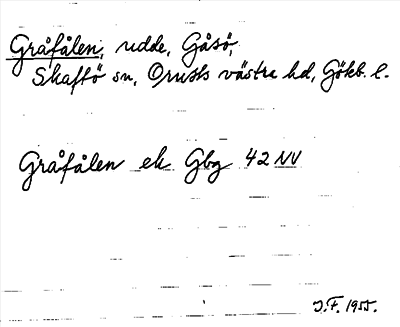 Gråfålen, udde, Gåsö,
Skaftö sn, Orusts västra hd, Götb. l.
Gråfålen ek Gbg 42 NV
J.F. 1955.